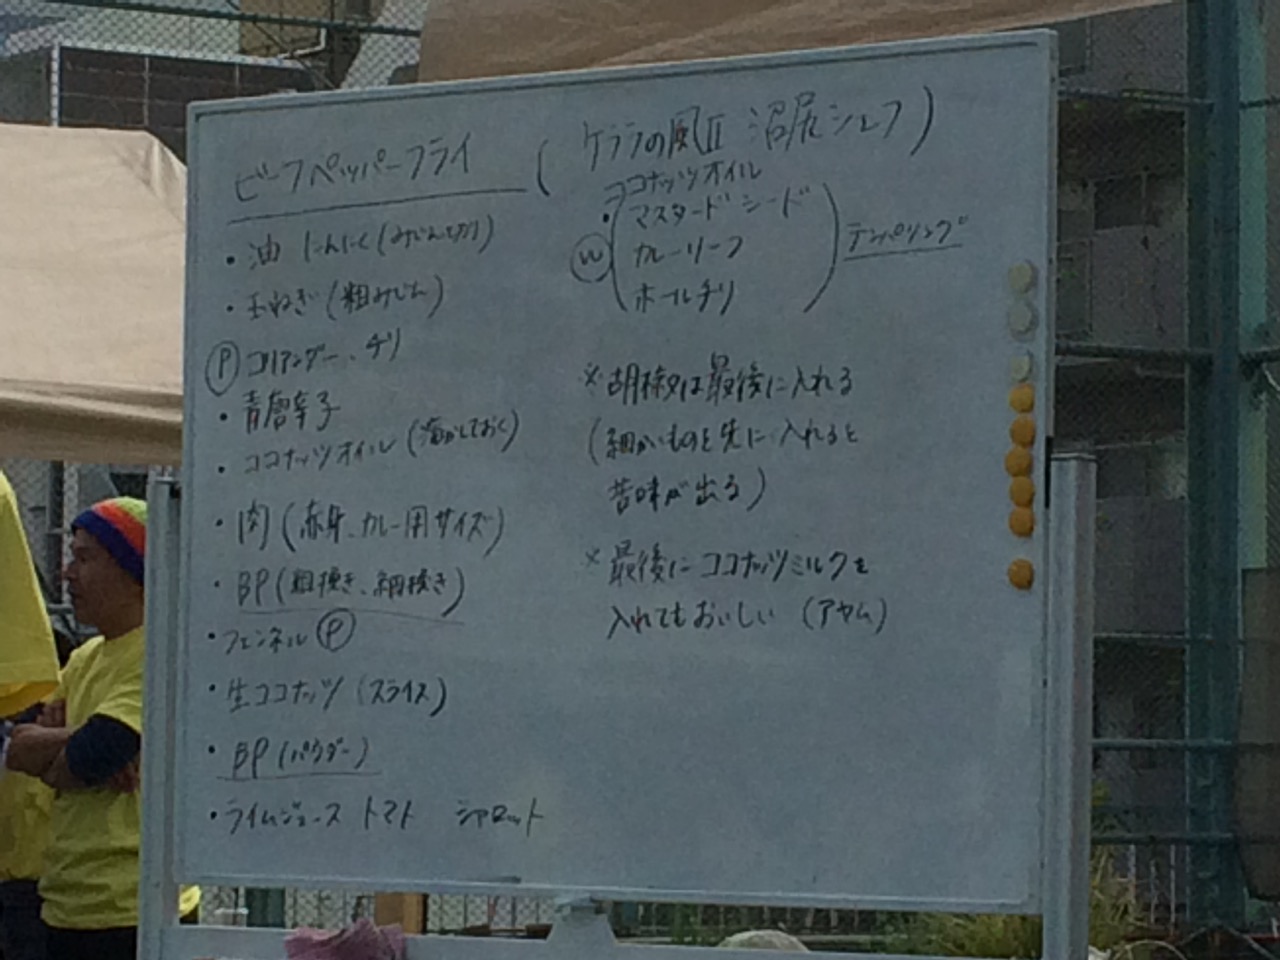 ビーフペッパーフライ (ケララの風Ⅱ 沼尻シェフ)
・油 にんにく(みじん切り)
・玉ねぎ(粗みじん)
Ⓟ コリアンダー、チリ
・青唐辛子
・ココナッツオイル(溶かしておく)
・肉(赤身、カレー用サイズ)
・BP(粗挽き、細挽き)
・フェンネルⓅ
・生ココナッツ(スライス)
・BP(パウダー)
・ライムジュース トマト シャロット
ココナッツオイル
・マスタードシード
Ⓦ カレーリーフ
ホールチリ
テンパリング
※胡椒は最後に入れる
(細かいものを先に入れると
苦味が出る)
※最後にココナッツミルクを
入れてもおいしい (アヤム)